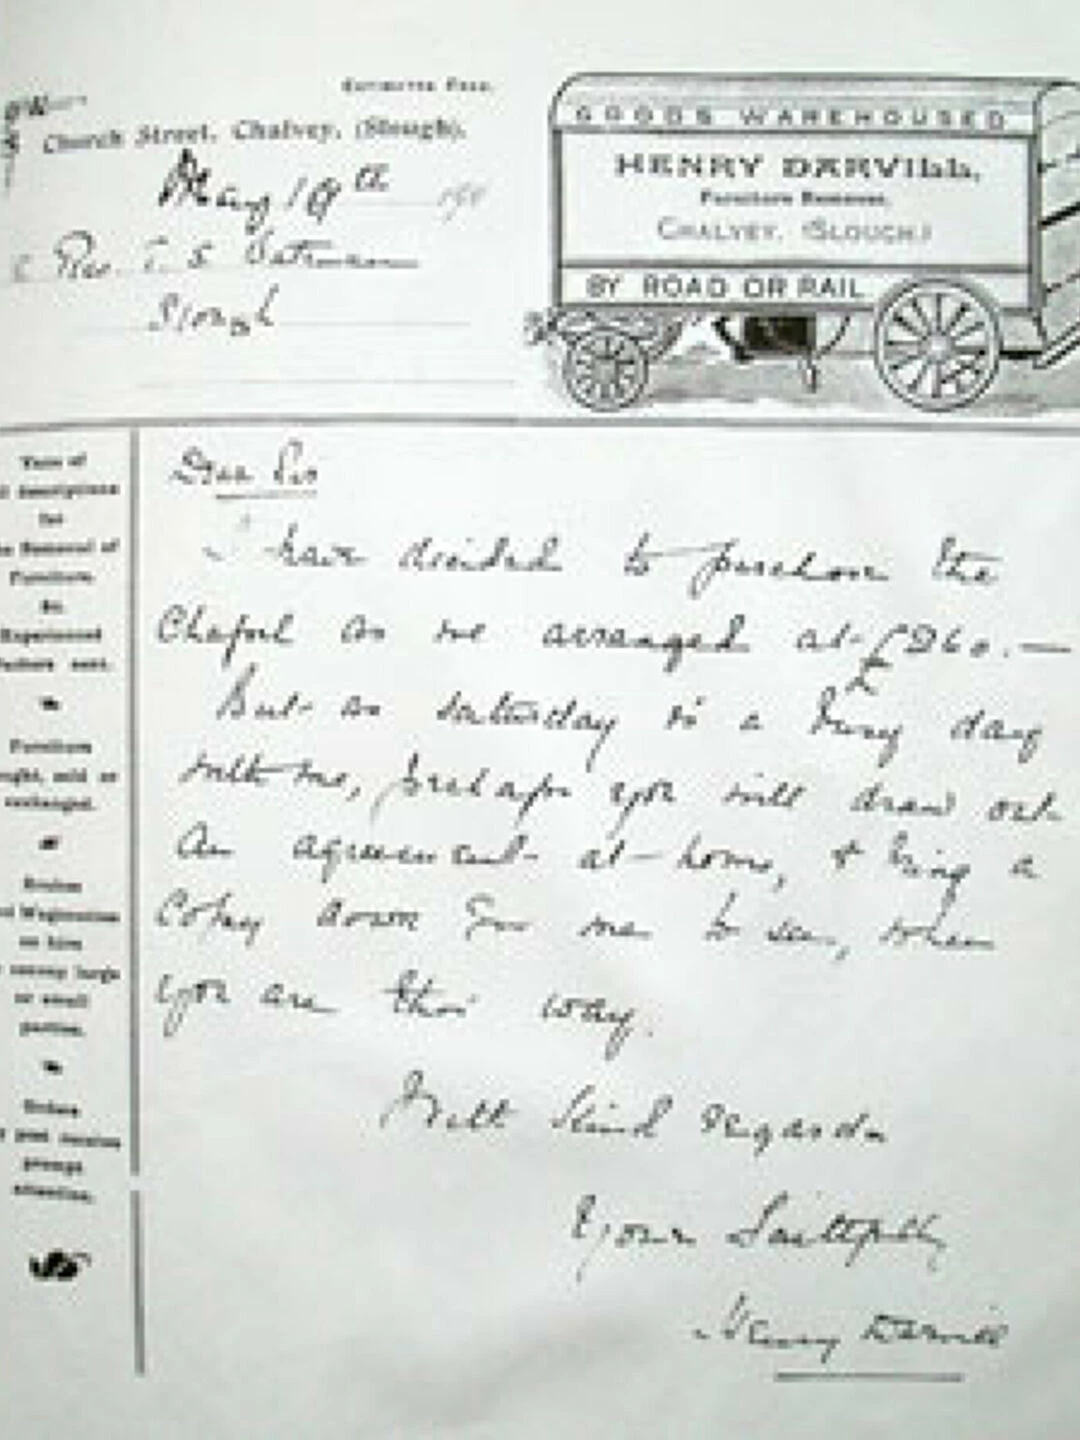 ESTIMATES FREE.
Church Street, Chalvey, (Slough).
May 19th 190
Rev. T. S.
Slough
GOODS WAREHOUSED
HENRY DARVILL,
Furniture Remover,
CHALVEY, (SLOUGH.)
BY ROAD OR RAIL
Vans of
descriptions
for
Removal of
Furniture
&c.
Experienced
Packers sent.
Furniture
sold or
exchanged.
Brakes
Wagonettes
on hire
to convey large
or small
parties.
Orders
post receive
prompt
attention.
Dear Sir
I have decided to purchase the
Chapel as we arranged at £260.—
But as Saturday is a busy day
with me, perhaps you will draw out
An agreement at home, & bring a
Copy down for me to see, when
you are this way.
With Kind Regards
Yours Faithfully
Henry Darvill